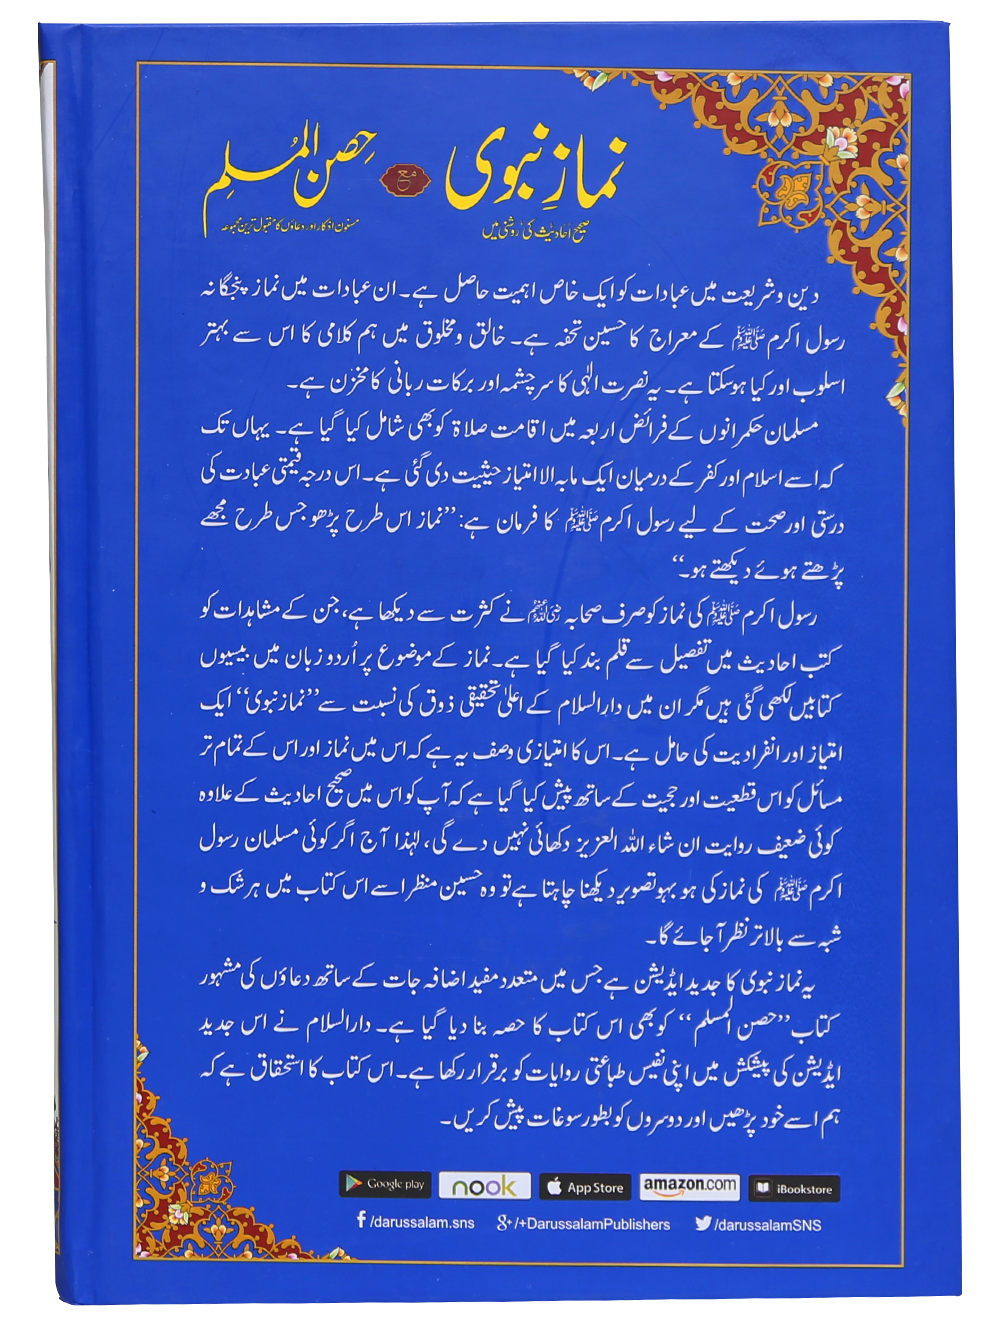 نمازِ نبوی مع حِصن المُسلِم
صحیح احادیث کی روشنی میں
مسنون اذکار اور دعاؤں کا مقبول ترین مجموعہ
دین و شریعت میں عبادات کو ایک خاص اہمیت حاصل ہے۔ ان عبادات میں نماز پنجگانہ
رسول اکرم ﷺ کے معراج کا حسین تحفہ ہے۔ خالق و مخلوق میں ہم کلامی کا اس سے بہتر
اسلوب اور کیا ہوسکتا ہے۔ یہ نصرت الٰہی کا سرچشمہ اور برکات ربانی کا مخزن ہے۔
مسلمان حکمرانوں کے فرائض اربعہ میں اقامت صلاۃ کو بھی شامل کیا گیا ہے۔ یہاں تک
کہ اسے اسلام اور کفر کے درمیان ایک مابہ الامتیاز حیثیت دی گئی ہے۔ اس درجہ قیمتی عبادت کی
درستی اور صحت کے لیے رسول اکرم ﷺ کا فرمان ہے: ’’نماز اس طرح پڑھو جس طرح مجھے
پڑھتے ہوئے دیکھتے ہو۔‘‘
رسول اکرم ﷺ کی نماز کو صرف صحابہ رضی اللہ عنہم نے کثرت سے دیکھا ہے، جن کے مشاہدات کو
کتب احادیث میں تفصیل سے قلم بند کیا گیا ہے۔ نماز کے موضوع پر اُردو زبان میں بیسیوں
کتابیں لکھی گئی ہیں مگر ان میں دارالسلام کے اعلیٰ تحقیقی ذوق کی نسبت سے ’’نماز نبوی‘‘ ایک
امتیاز اور انفرادیت کی حامل ہے۔ اس کا امتیازی وصف یہ ہے کہ اس میں نماز اور اس کے تمام تر
مسائل کو اس قطعیت اور حجیت کے ساتھ پیش کیا گیا ہے کہ آپ کو اس میں صحیح احادیث کے علاوہ
کوئی ضعیف روایت ان شاء اللہ العزیز دکھائی نہیں دے گی، لہٰذا آج اگر کوئی مسلمان رسول
اکرم ﷺ کی نماز کی ہو بہو تصویر دیکھنا چاہتا ہے تو وہ حسین منظر اسے اس کتاب میں ہر شک و
شبہ سے بالاتر نظر آ جائے گا۔
یہ نماز نبوی کا جدید ایڈیشن ہے جس میں متعدد مفید اضافہ جات کے ساتھ دعاؤں کی مشہور
کتاب ’’حصن المسلم‘‘ کو بھی اس کتاب کا حصہ بنا دیا گیا ہے۔ دارالسلام نے اس جدید
ایڈیشن کی پیشکش میں اپنی نفیس طباعتی روایات کو برقرار رکھا ہے۔ اس کتاب کا استحقاق ہے کہ
ہم اسے خود پڑھیں اور دوسروں کو بطور سوغات پیش کریں۔
Google play nook App Store amazon.com iBookstore
f /darussalam.sns g+/+DarussalamPublishers /darussalamSNS